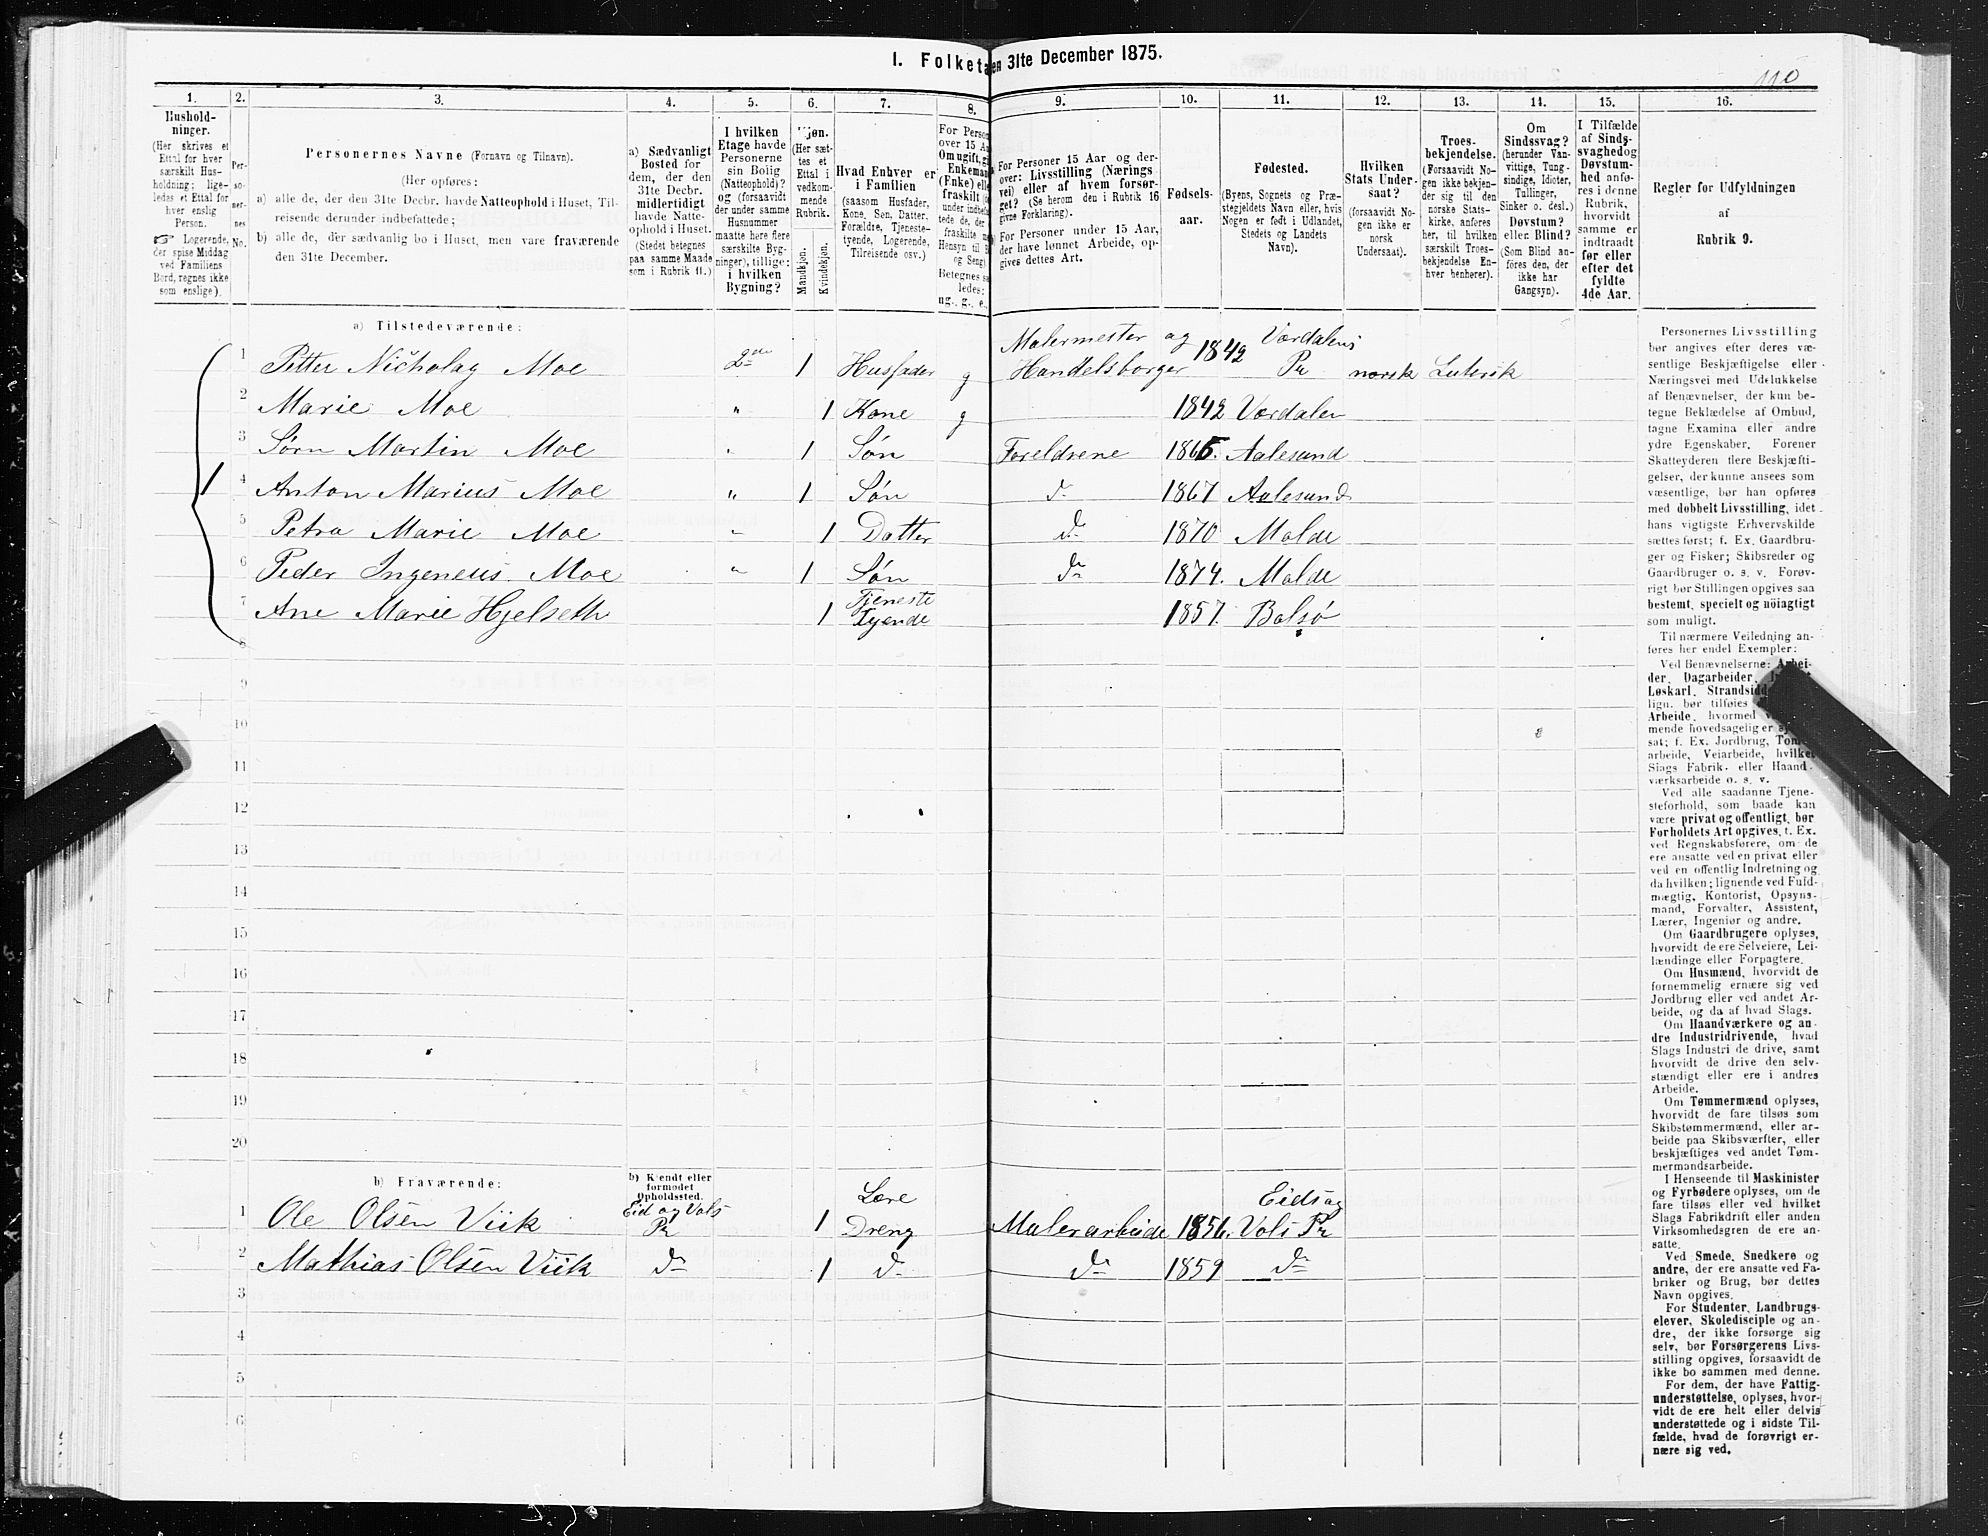 I. Folketa en 31te December 1875.
110
1. 2. 3. 4. 5. 6. 7. 8. 9. 10. 11. 12. 13. 14. 15. 16.
Hushold-
ninger.
(Her skrives et
Ettal for hver
særskilt Hus-
holdning; lige-
ledes et Ettal for
hver enslig
Person.
Logerende,
der spise Middag
ved Familiens
Bord, regnes ikke
som enslige).
Per-
so-
ner-
nes
No.
Personernes Navne (Fornavn og Tilnavn).
(Her opføres:
a) alle de, der den 31te Decbr. havde Natteophold i Huset, Til-
reisende derunder indbefattede;
b) alle de, der sædvanlig bo i Huset, men vare fraværende
den 31te December.
a) Sædvanligt
Bosted for
dem, der den
31te Decbr.
midlertidigt
havde Natte-
ophold i Huset.
(Stedet betegnes
paa samme Maade
som i Rubrik 11.)
I hvilken
Etage havde
Personerne
sin Bolig
(Natteophold)?
og (forsaavidt
der under samme
Husnummer
maatte høre flere
særskilte Byg-
ninger), tillige:
i hvilken
Bygning?
Kjøn.
(Her sæt-
tes et
Ettal i
vedkom-
mende
Rubrik.
Mandkjøn.
Kvindekjøn.
Hvad Enhver er
i Familien
(saasom Husfader,
Kone, Søn, Datter,
Forældre, Tjeneste-
tyende, Logerende,
Tilreisende osv.)
For Person
over 15 Aa
Om ugift, gi
Enkeman
(Enke) elle
fraskilt (og
under indbefat-
tede de, der
fraskilte m
Hensyn til B
og Seng)
Betegnes sa
ledes:
ug., g., e.,
For Personer 15 Aar og der-
over: Livsstilling (Nærings
vei) eller af hvem forsør-
get? (Se herom den i Rubrik 16
givne Forklaring).
For Personer under 15 Aar,
der have lønnet Arbeide, op-
gives dettes Art.
Fødsels-
aar.
Fødested.
(Byens, Sognets og Præ-
stegjeldets Navn eller, hvis
Nogen er født i Udlandet,
Stedets og Landets
Navn).
Hvilken
Stats Under-
saat?
(forsaavidt No-
gen ikke er
norsk
Undersaat).
Troes-
bekjendelse.
(Forsaavidt No-
gen ikke bekjen-
der sig til den
norske Stats-
kirke, anføres
her, til hvilken
særskilt Troes-
bekjendelse En-
hver benhører).
Om
Sindssvag?
(herunder Van-
vittige, Tung-
sindige, Idioter,
Tullinger,
Sinker o. desl.)
Døvstum?
eller Blind?
(Som Blind an-
føres den, der
ikke har
Gangsyn).
I Tilfælde
af Sinds-
svaghed og
Døvstum-
hed anfø-
res i denne
Rubrik,
hvorvidt
samme er
indtraadt
før eller
efter det
fyldte
4de Aar.
Regler for Udfyldningen
af
Rubrik 9.
a) Tilstedeværende:
1 Petter Nicholay Moe 2de 1 Husfader g Malermester og Handelsborger 1842 Værdalens Pr norsk Lutersk
2 Marie Moe " 1 Kone g 1842 Værdalen
3 Sørn Martin Moe " 1 Søn Foreldrene 1865. Aalesund
1
4 Anton Marius Moe " 1 Søn do 1867 Aalesund
5 Petra Marie Moe " 1 Datter do 1870 Molde
6 Peder Ingeneus Moe " 1 Søn do 1874. Molde
7 Ane Marie Hjelseth 1 Tjeneste Tyende 1857. Bolsø
8
9
10
11
12
13
14
15
16
17
18
19
20
b) Fraværende:
b) Kjendt eller
formodet
Opholdssted.
1 Ole Olsen Viik Eid og Vols Pr 1 Lære Dreng Malerarbeide 1856. Eids og Vols Pr
2 Mathias Olsen Viik do 1 do do 1859 do
3
4
5
6
Personernes Livsstilling
bør angives efter deres væ-
sentlige Beskjæftigelse eller
Næringsvei med Udelukkelse
af Benævnelser, der kun be-
tegne Beklædelse af Ombud,
tagne Examina eller andre
ydre Egenskaber. Forener
Skatteyderen flere Beskjæfti-
gelser, der kunne ansees som
væsentlige, bør han opføres
med dobbelt Livsstilling, idet
hans vigtigste Erhvervskilde
sættes først; f. Ex. Gaardbru-
ger og Fisker; Skibsreder og
Gaardbruger o. s. v. Forøv-
rigt bør Stillingen opgives saa
bestemt, specielt og nöiagtigt
som muligt.
Til nærmere Veiledning an-
føres her endel Exempler:
Ved Benævnelserne: Arbei-
der, Dagarbeider,
Løskarl, Strandsidd
lign. bør tilføies
Arbeide, hvormed
mende hovedsagelig er sy
sat; f. Ex. Jordbrug, Tøm
arbeide, Veiarbeide, hvilket
Slags Fabrik- eller Haand-
værksarbeide o. s. v.
Ved alle saadanne Tjene-
steforhold, som baade kan
være privat og offentligt, bør
Forholdets Art opgives, t. Ex.
ved Regnskabsførere, om de
ere ansatte ved en privat eller
ved en offentlig Indretning og
da hvilken; lignende ved Fuld-
mægtig, Kontorist, Opsyns-
mand, Forvalter, Assistent,
Lærer, Ingeniør og andre.
Om Gaardbrugere oplyses,
hvorvidt de ere Selveiere, Lei-
lændinge eller Forpagtere.
Om Husmænd, hvorvidt de
fornemmelig ernære sig ved
Jordbrug eller ved andet Ar-
beide, og da af hvad Slags.
Om Haandværkere og an-
dre Industridrivende, hvad
Slags Industri de drive, samt
hvorvidt de drive den selv-
stændigt eller ere i andres
Arbeide.
Om Tømmermænd oplyses,
hvorvidt de fare tilsøs som
Skibstømmermænd, eller ar-
beide paa Skibsværfter, eller
beskjæftiges ved andet Tøm-
mermandsarbeide.
I Henseende til Maskinister
og Fyrbødere oplyses, om de
fare tilsøs eller ved hvilket
Slags Fabrikdrift eller anden
Virksomhedsgren de ere an-
satte.
Ved Smede, Snedkere og
andre, der ere ansatte ved Fa-
briker og Brug, bør dettes
Navn opgives.
For Studenter, Landbrugs-
elever, Skoledisciple og an-
dre, der ikke forsørge sig
selv, bør Forsørgerens Livs-
stilling opgives, forsaavidt de
ikke bo sammen med denne.
For dem, der have Fattig-
understøttelse, oplyses, hvor-
vidt de ere helt eller delvis
understøttede og i sidste Til-
fælde, hvad de forøvrigt er-
nære sig ved.